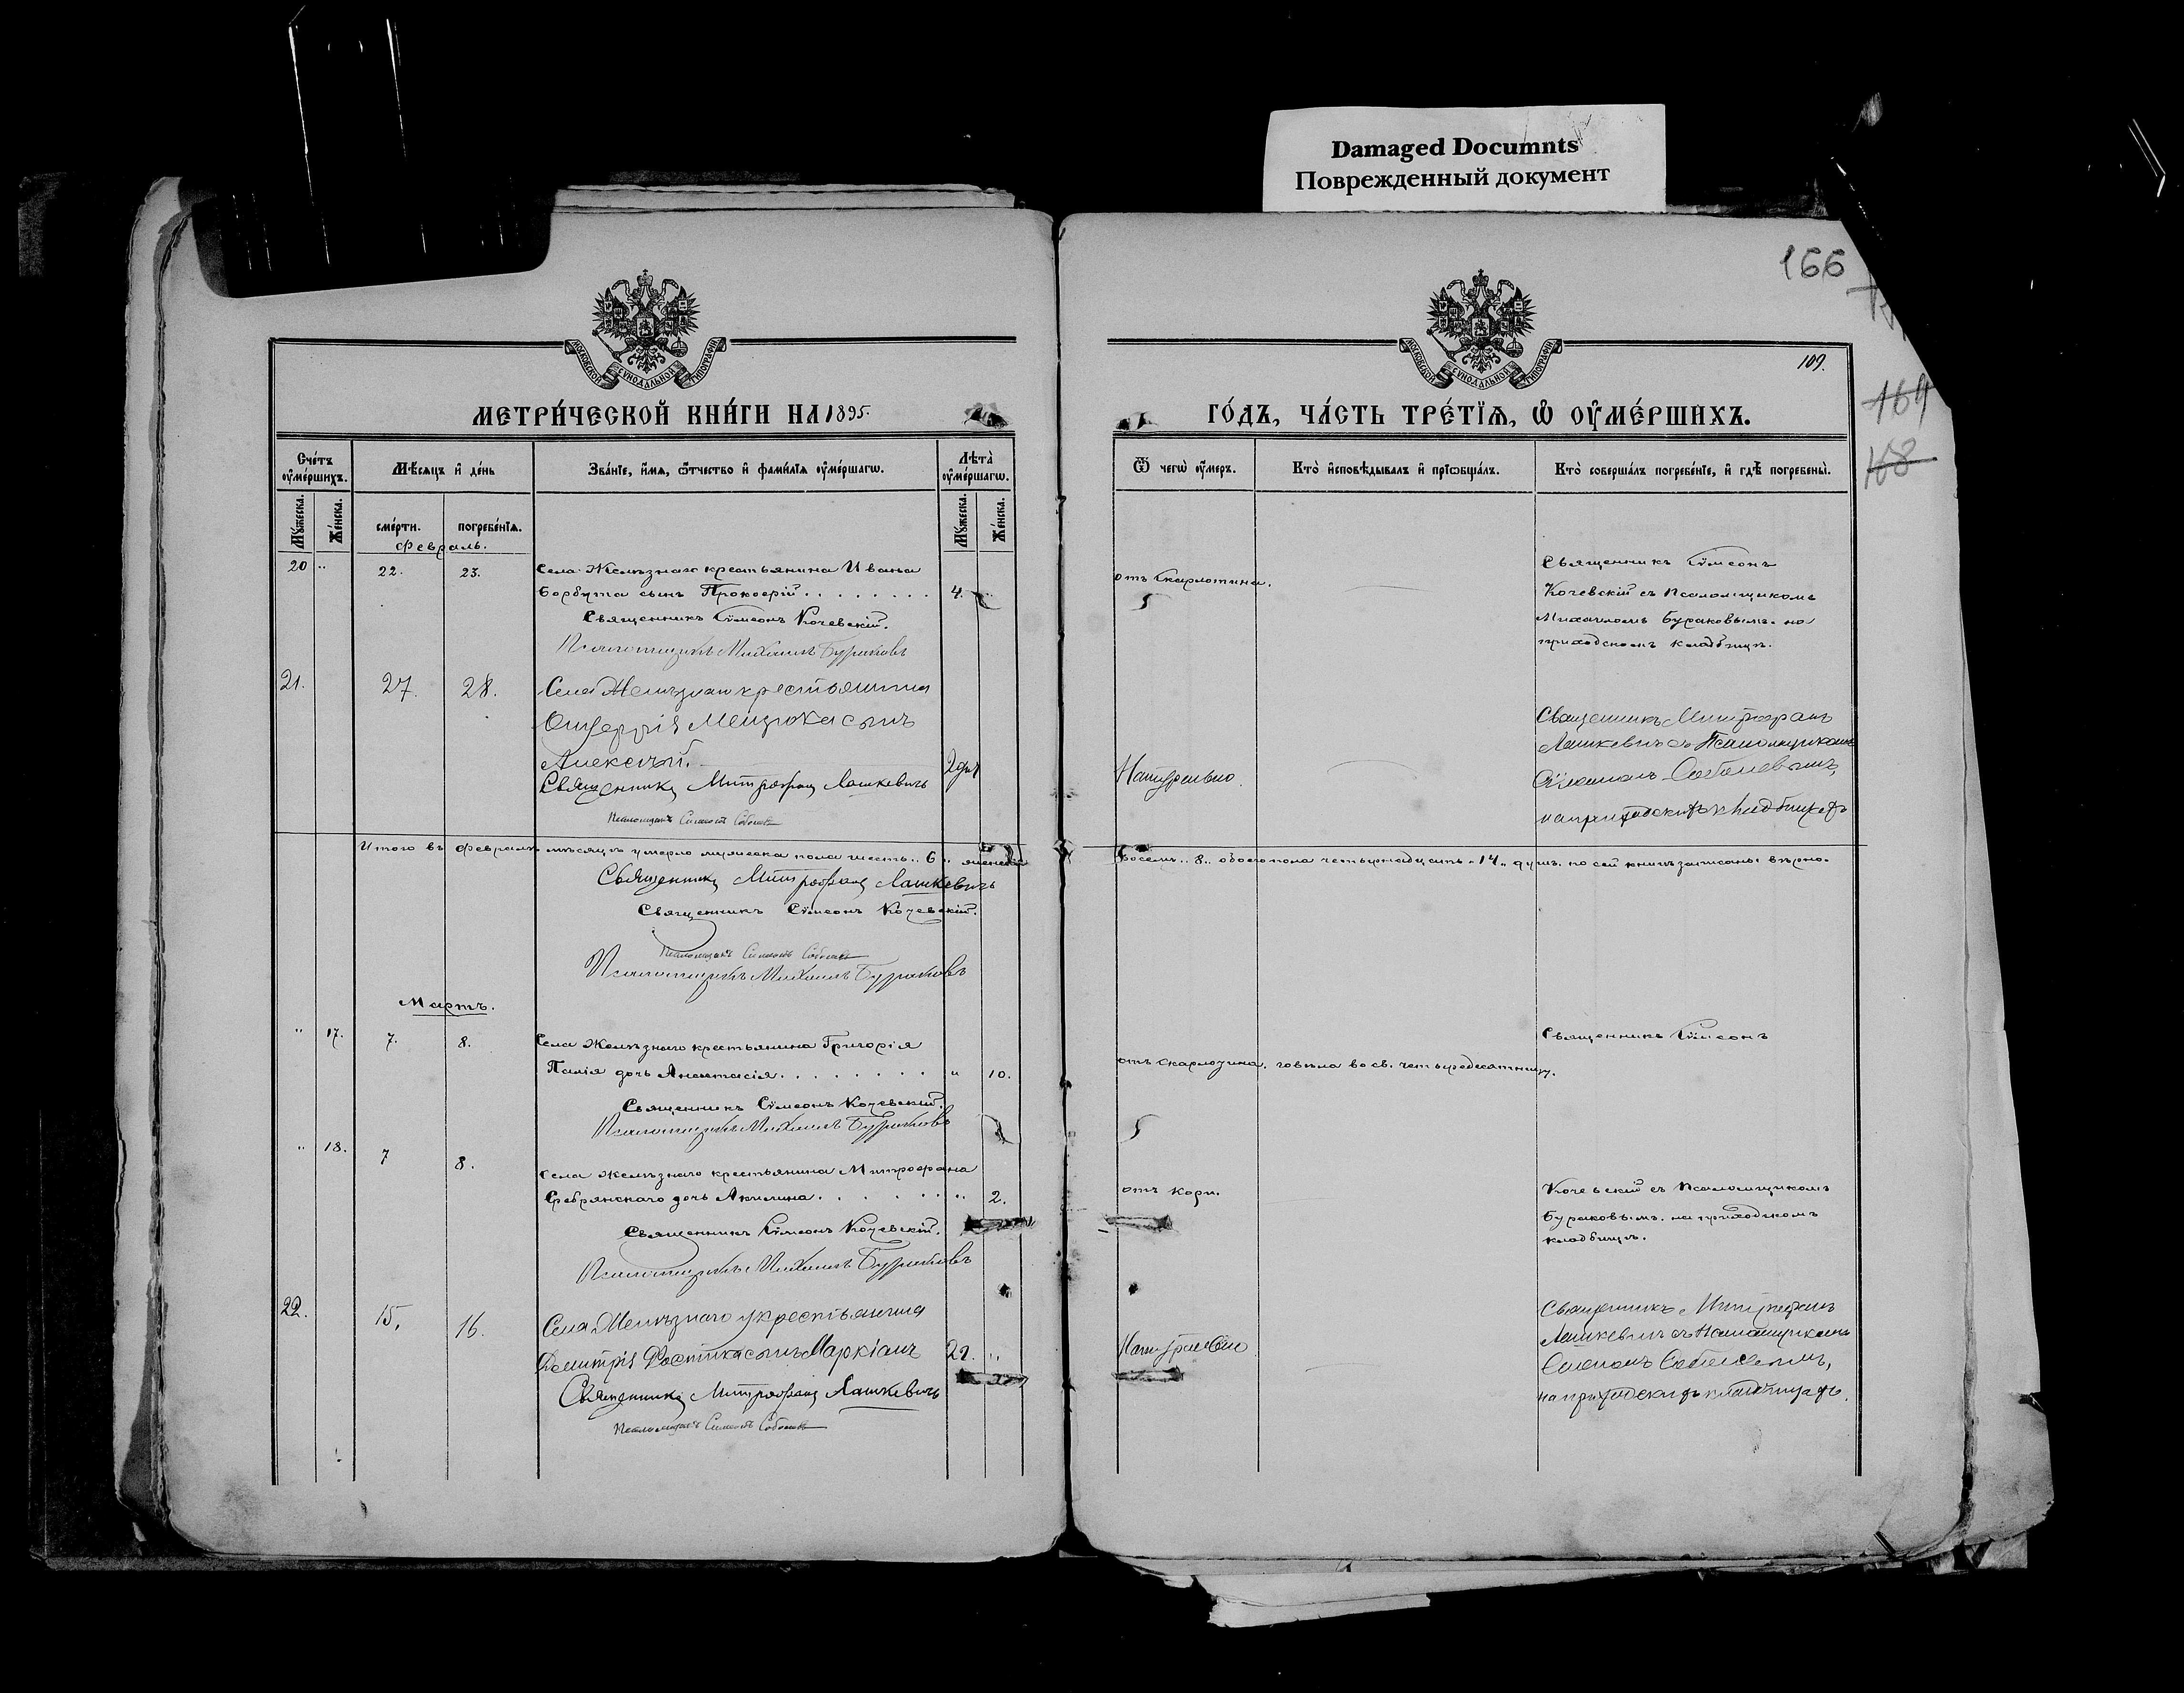 Damaged Documnts
Поврежденный документ
166
164
168
109.
МОСКОВСКОЙ СУНОДАЛЬНОЙ ТИПОГРАФІИ
МОСКОВСКОЙ СУНОДАЛЬНОЙ ТИПОГРАФІИ
МЕТРИ́ЧЕСКОЙ КНИ́ГИ НА 1895.
ГО́ДЪ, ЧА́СТЬ ТРЕ́ТЇѦ, Ѡ҆ ОУ҆МЕ́РШИХЪ.
Сче́тъ оу҆ме́ршихъ.
Мѣ́сѧцъ и҆ де́нь
Зва́нїе, и҆́мѧ, ѻ҆́тчество и҆ фами́лїѧ оу҆ме́ршагѡ.
Лѣта̀ оу҆ме́ршагѡ.
Ѿ чегѡ̀ оу҆́меръ.
Кто̀ и҆сповѣ́дывалъ и҆ прїѡбща́лъ.
Кто̀ соверша́лъ погребе́нїе, и҆ гдѣ̀ погребены̀.
Мꙋ́жеска.
Же́нска.
сме́рти.
погребе́нїѧ.
Мꙋ́жеска.
Же́нска.
Февраль.
20 „ 22. 23. Села Желѣзнаго крестьянина Ивана
Борбута сынъ Прокофій . . . . . . . . 4.
Священникъ Сѵмеонъ Кочевскій.
Псаломщикъ Михаилъ Бураковъ
отъ Скарлатина.
Священникъ Сѵмеонъ
Кочевскій съ Псаломщикомъ
Михаиломъ Бураковымъ. на
приходскомъ кладбищѣ.
21. 27. 28. Села Желѣзнаго крестьянина
сынъ
Алексѣй. 2 дн.
Священникъ Митрофанъ Лашкевичъ
Псаломщикъ Симеонъ Соболевъ
Натурально
Священникъ Митрофанъ
Лашкевичъ съ Псаломщикомъ
Сѵмеономъ Соболевымъ,
на приходскихъ кладбищахъ
Итого въ Февралѣ мѣсяцѣ умерло мужеска пола шесть „ 6 „ женска восемь „ 8 „ обоего пола четырнадцать „ 14 „ душъ. по сей книгѣ записаны вѣрно.
Священникъ Митрофанъ Лашкевичъ
Священникъ Сѵмеонъ Кочевскій.
Псаломщикъ Симеонъ Соболевъ
Псаломщикъ Михаилъ Бураковъ
Мартъ.
„ 17. 7. 8. Села Желѣзнаго крестьянина Григорія
Палія дочь Анастасія . . . . . . . . „ 10.
Священникъ Сѵмеонъ Кочевскій.
Псаломщикъ Михаилъ Бураковъ
отъ Скарлатина. говѣла во св. четыредесятницу.
Священникъ Сѵмеонъ
„ 18. 7 8. Села Желѣзнаго крестьянина Митрофана
Сребрянскаго дочь Акилина . . . . . . „ 2.
Священникъ Сѵмеонъ Кочевскій.
Псаломщикъ Михаилъ Бураковъ
отъ кори.
Кочевскій съ Псаломщикомъ
Бураковымъ. на приходскомъ
кладбищѣ.
22. 15. 16. Села Желѣзнаго крестьянина
Димитрія Костюка сынъ Маркіанъ 22. „
Священникъ Митрофанъ Лашкевичъ
Псаломщикъ Симеонъ Соболевъ
Натурально
Священникъ Митрофанъ
Лашкевичъ съ Псаломщикомъ
Симеономъ Соболевымъ,
на приходскихъ кладбищахъ.